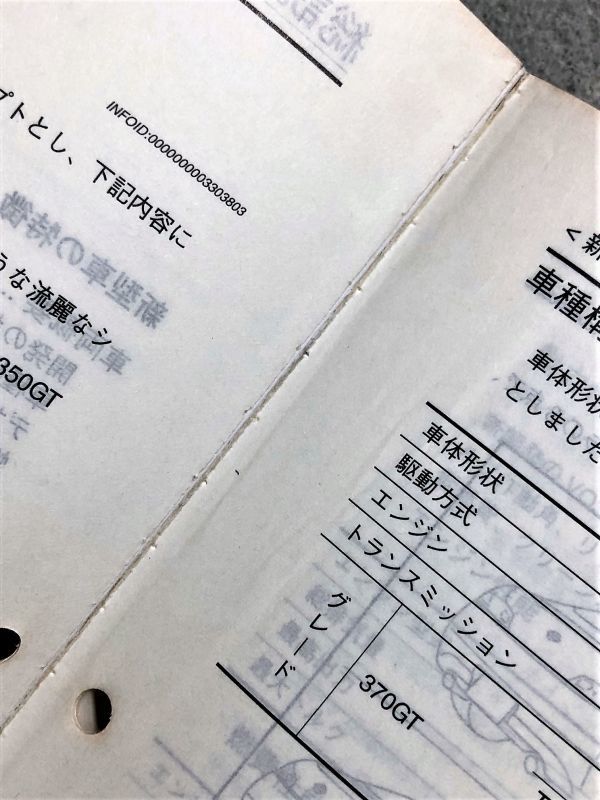 INFOID:0000000003303803
プトとし、下記内容に
うな流麗なシ
350GT
<新
車種構
車体形状
としました
車体形状
駆動方式
エンジン
トランスミッション
グレード
370GT